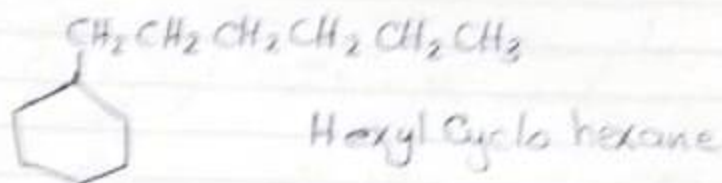 CH₂CH₂CH₂CH₂CH₂CH₃
Hexyl Cyclo hexane